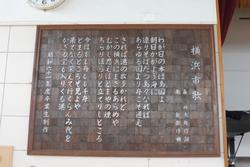 横浜市歌
森林太郎作詞
南能衛作曲
わが日の本は島国よ
朝日かがよう海に
連りそばだつ島々なれば
あらゆる国より舟こそ通え
されば港の数多かれど
この横浜にまさるあらめや
むかし思えばとま屋の煙
ちらりほらりと立てりしところ
今はもも舟もも千舟
泊るところぞ見よや
果なく栄えて行くらんみ代を
飾る宝も入りくる港
年度卒業生制作